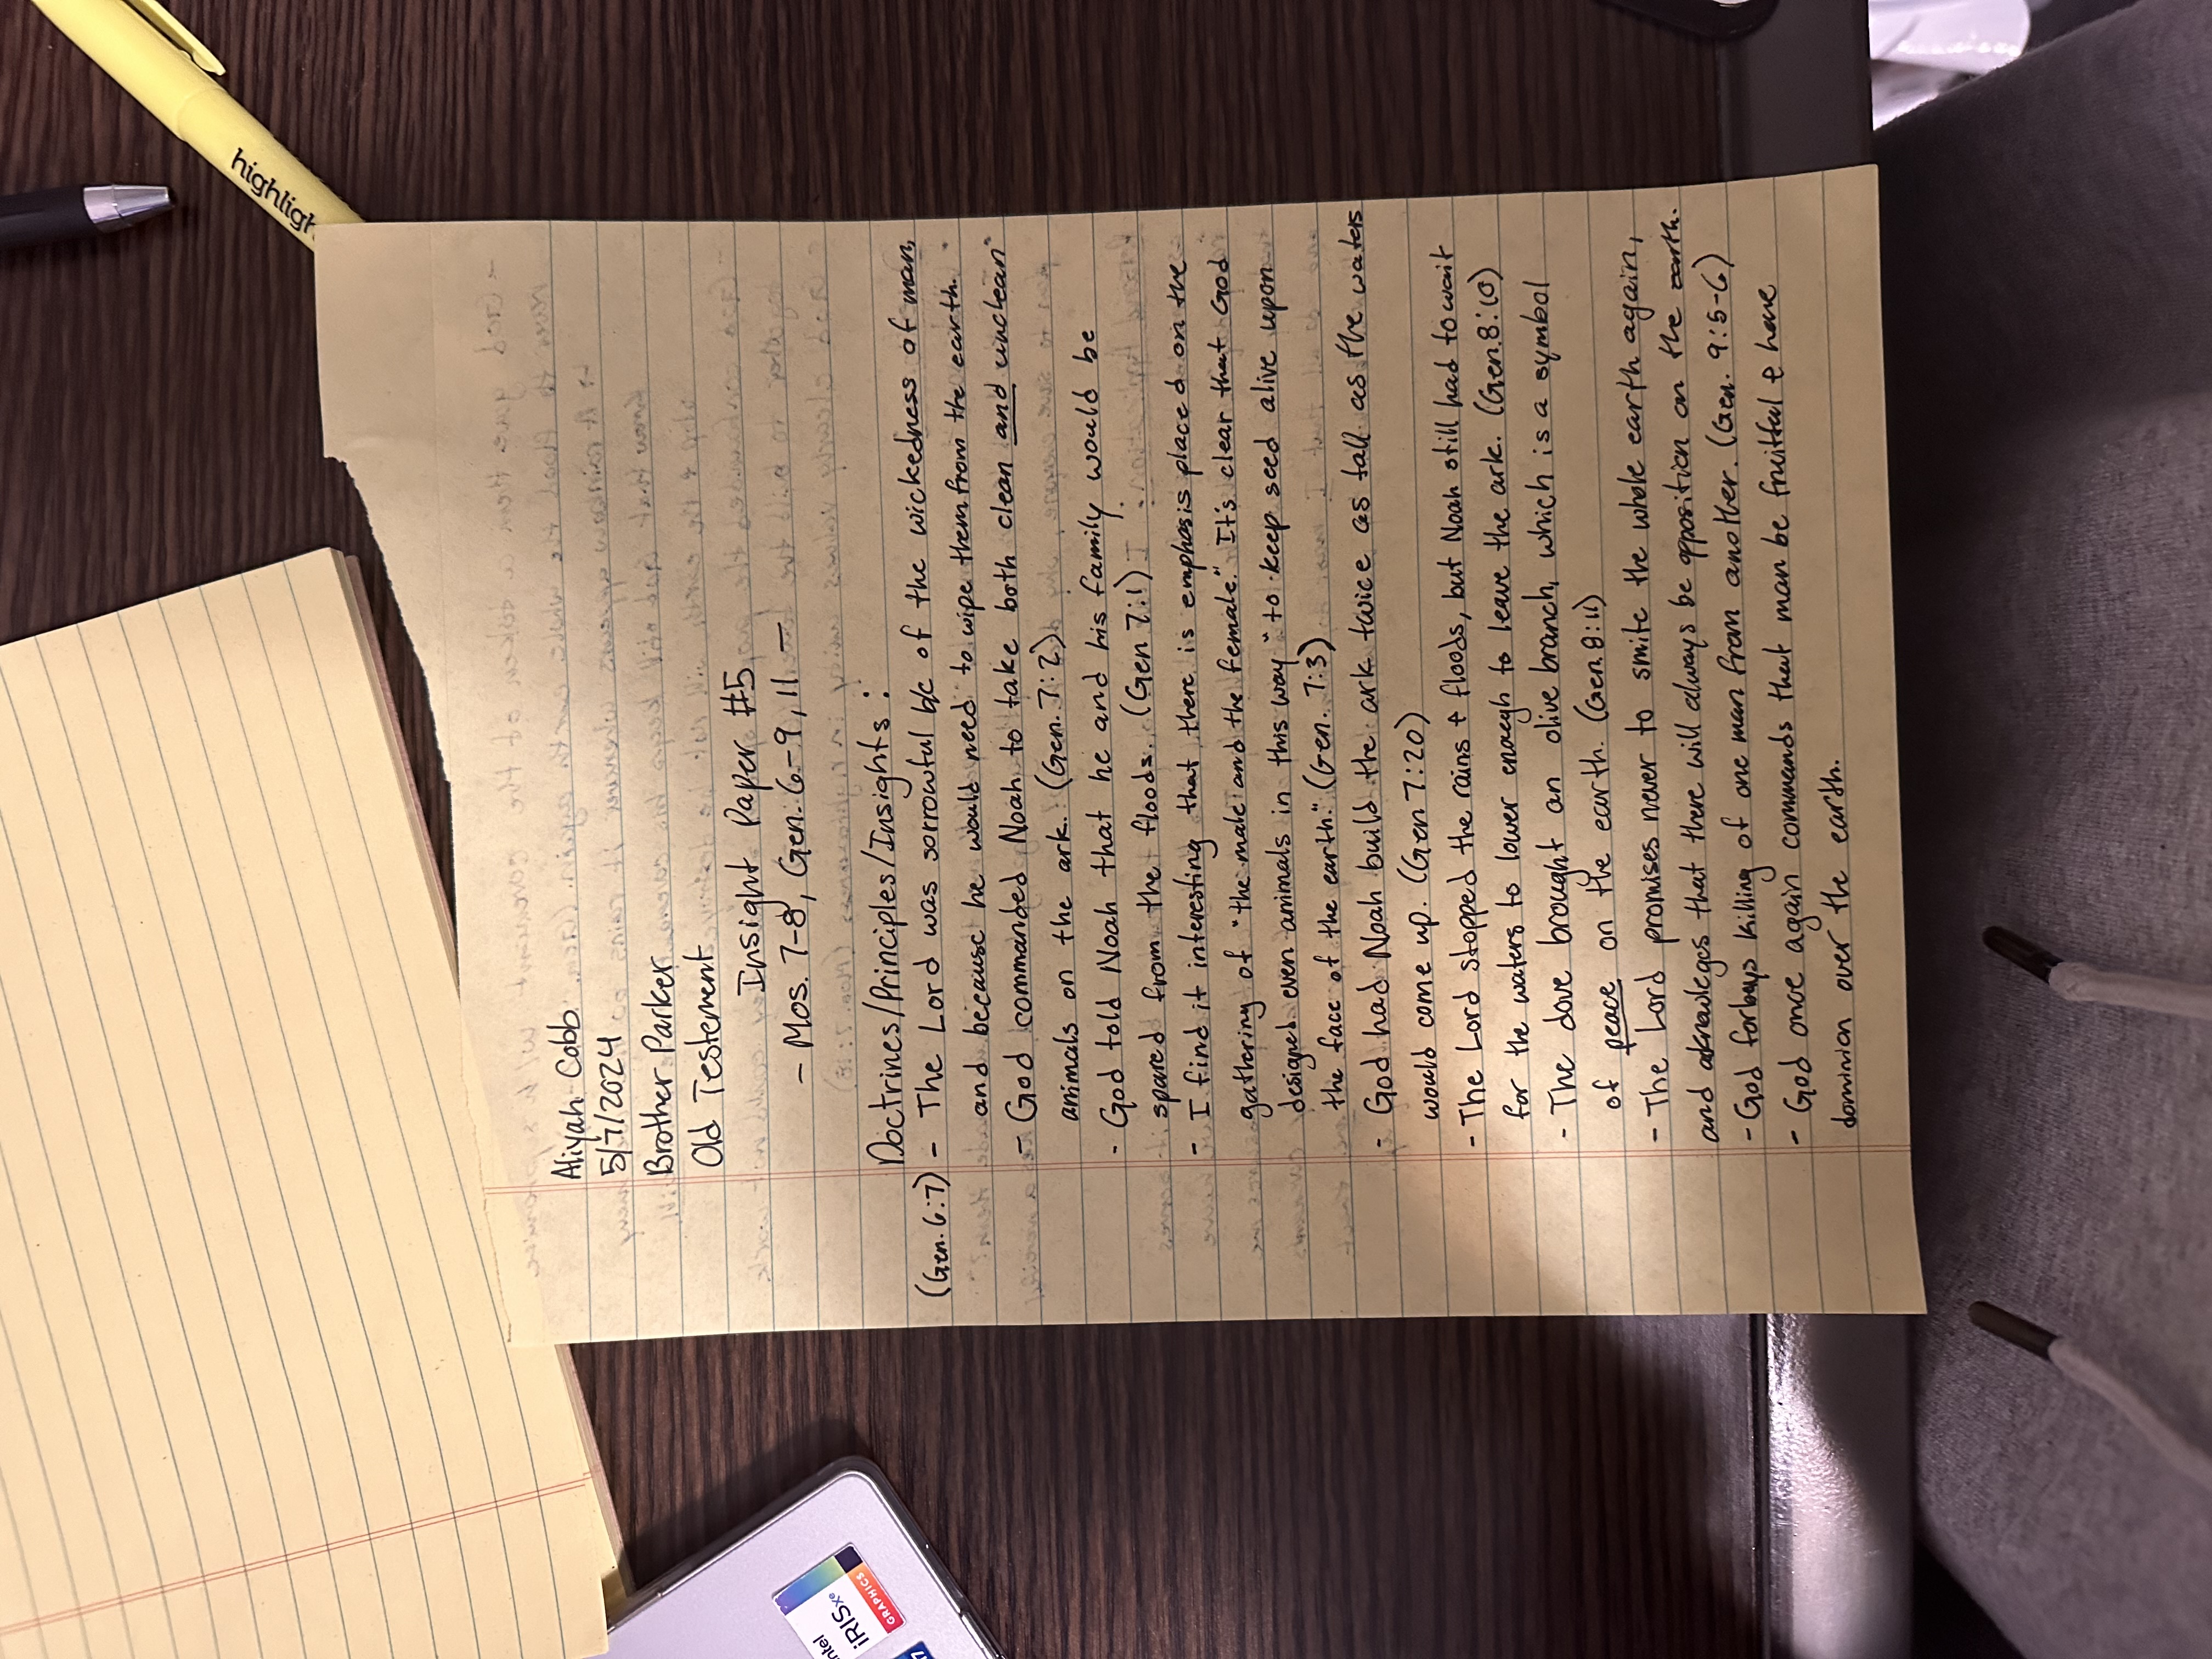 highligh
ntel
iRISxe
GRAPHICS
Aliyah Cobb
5/7/2024
Brother Parker
Old Testement
Insight Paper #5
- Mos. 7-8, Gen. 6-9, 11 -
Doctrines/Principles/Insights:
(Gen. 6:7) - The Lord was sorrowful b/c of the wickedness of man,
and because he would need to wipe them from the earth.
- God commanded Noah to take both clean and unclean
animals on the ark. (Gen. 7:2)
- God told Noah that he and his family would be
spared from the floods. (Gen 7:1)
- I find it interesting that there is emphasis placed on the
gathering of "the male and the female." It's clear that God
designed even animals in this way "to keep seed alive upon
the face of the earth." (Gen. 7:3)
- God had Noah build the ark twice as tall as the waters
would come up. (Gen 7:20)
- The Lord stopped the rains + floods, but Noah still had to wait
for the waters to lower enough to leave the ark. (Gen. 8:10)
- The dove brought an olive branch, which is a symbol
of peace on the earth. (Gen. 8:11)
- The Lord promises never to smite the whole earth again,
and aknowleges that there will always be opposition on the earth.
- God forbays killing of one man from another. (Gen. 9:5-6)
- God once again commands that man be fruitful & have
dominion over the earth.